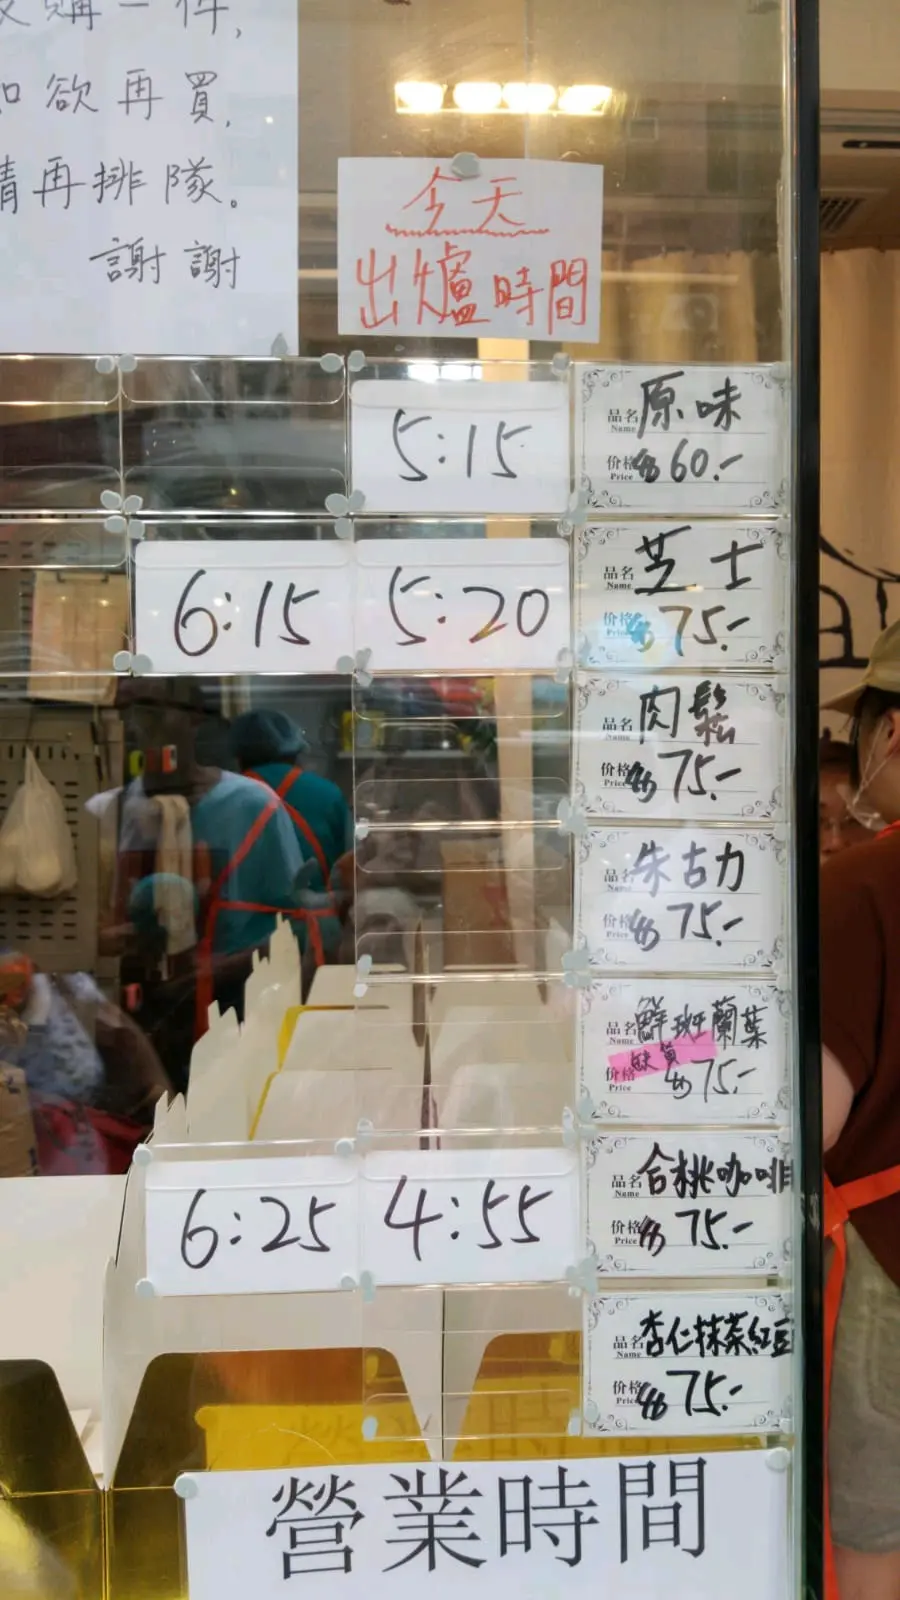 購一件,
欲再買,
請再排隊。
謝謝
今天
出爐時間
5:15
品名 原味
Name
价格 60.-
Price
6:15 5:20
品名 芝士
Name
价格 75.-
品名 肉鬆
Name
价格 75.-
Price
品名 朱古力
Name
价格 75.-
Price
品名 鮮班蘭葉
Name
缺貨
价格 75.-
Price
6:25 4:55
品名 合桃咖啡
Name
价格 75.-
Price
品名 杏仁抹茶紅豆
Name
价格 75.-
Price
營業時間